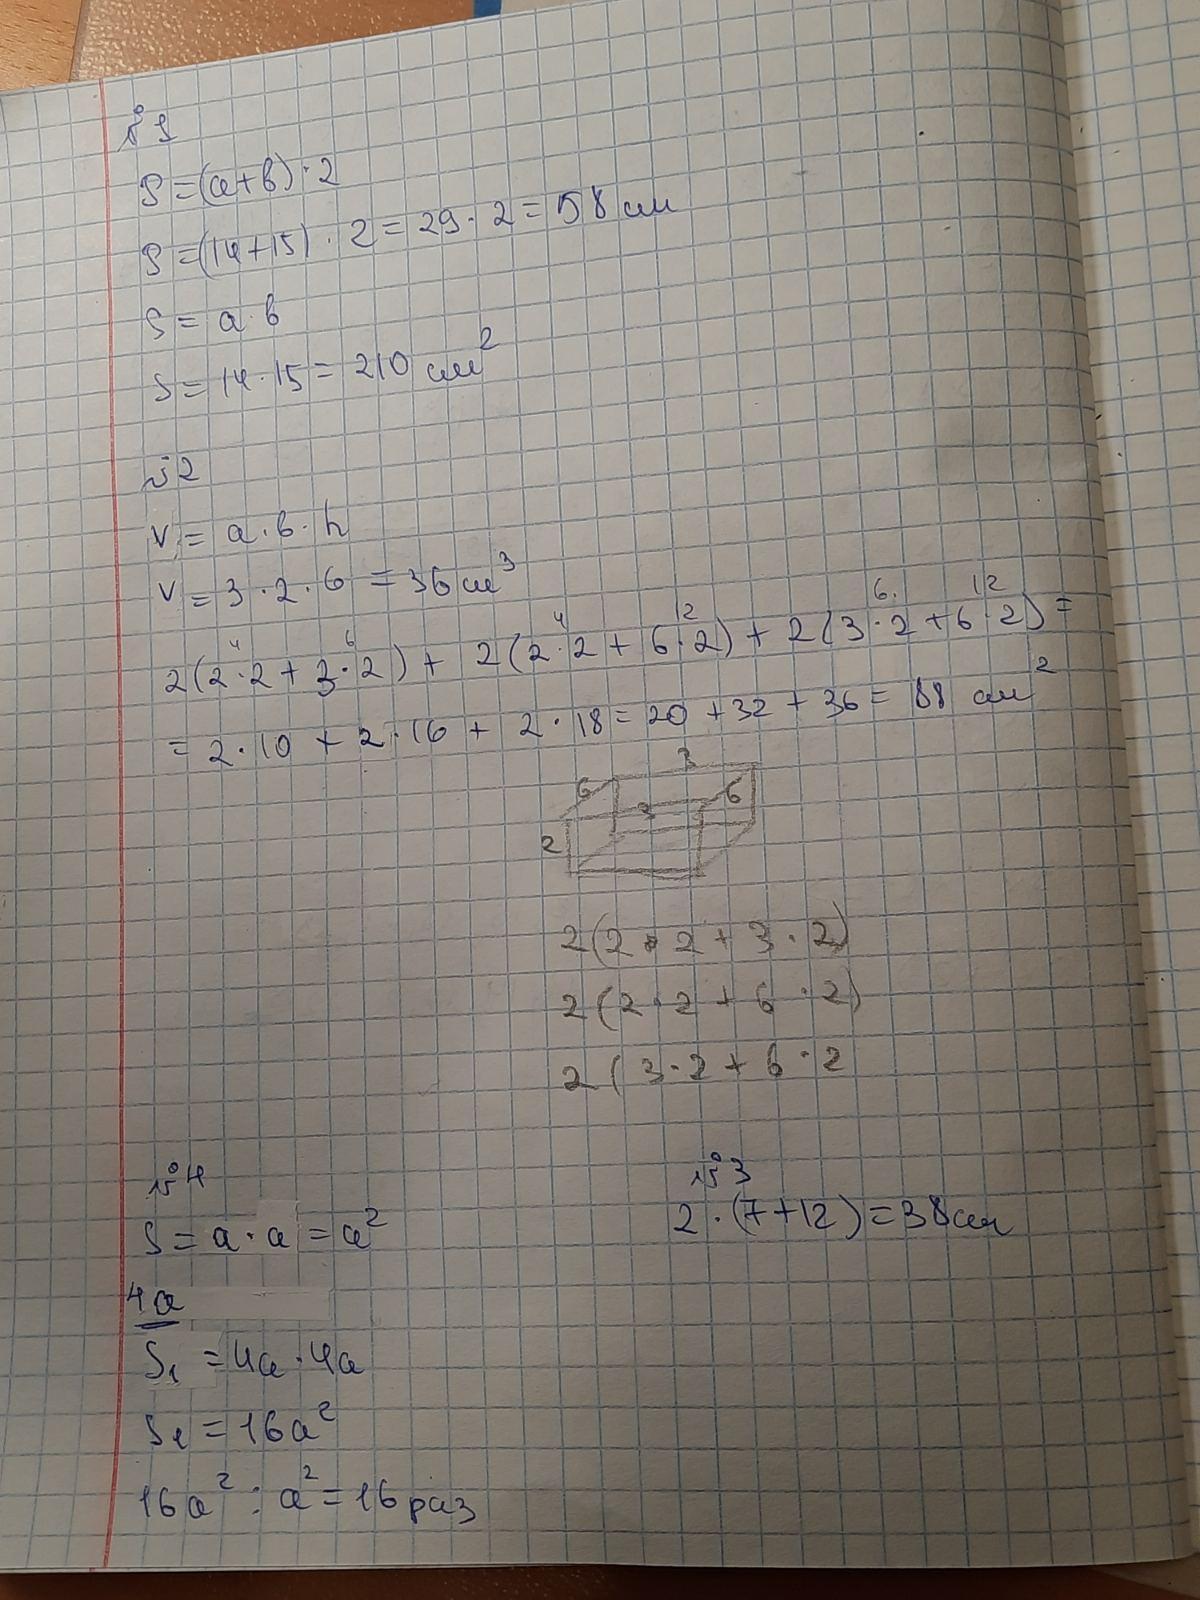 № 1
P = (a+b)·2
P = (14+15)·2 = 29·2 = 58 см
S = a·b
S = 14·15 = 210 см²
№ 2
V = a·b·h
V = 3·2·6 = 36 см³
4 6 4 12 6. 12
2(2·2 + 3·2) + 2(2·2 + 6·2) + 2(3·2 + 6·2) =
= 2·10 + 2·16 + 2·18 = 20 + 32 + 36 = 88 см²
3
6 3 6
2
2(2·2 + 3·2)
2(2·2 + 6·2)
2(3·2 + 6·2
№ 4
S = a·a = a²
4a
S₁ = 4a·4a
S₁ = 16a²
16a² : a² = 16 раз
№ 3
2·(7+12) = 38 см